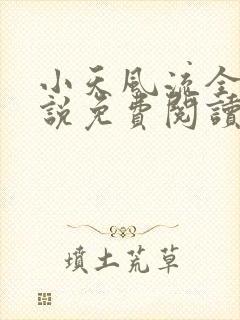 小天風流全
說免費閱讀
墳土荒草